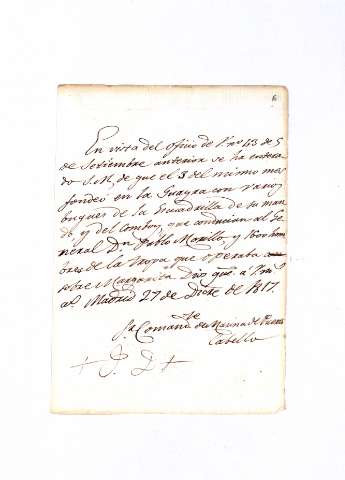 6
En vista del oficio de V. nº 43 de 5
de Setiembre anterior se ha entera
do S.M. de que el 3 del mismo mes
fondeó en la Guayra con varios
buques de la Escuadrilla de su man
do y del Comboy, que conducian al Ge
neral Dn Pablo Morillo, y 1600 hom
bres de la tropa que operaba
sobre Margarita. Dios gue. a V. ms
as. Madrid 27 de Dicre de 1817.
Sr. Comandte de Marina de Puerto
Cabello